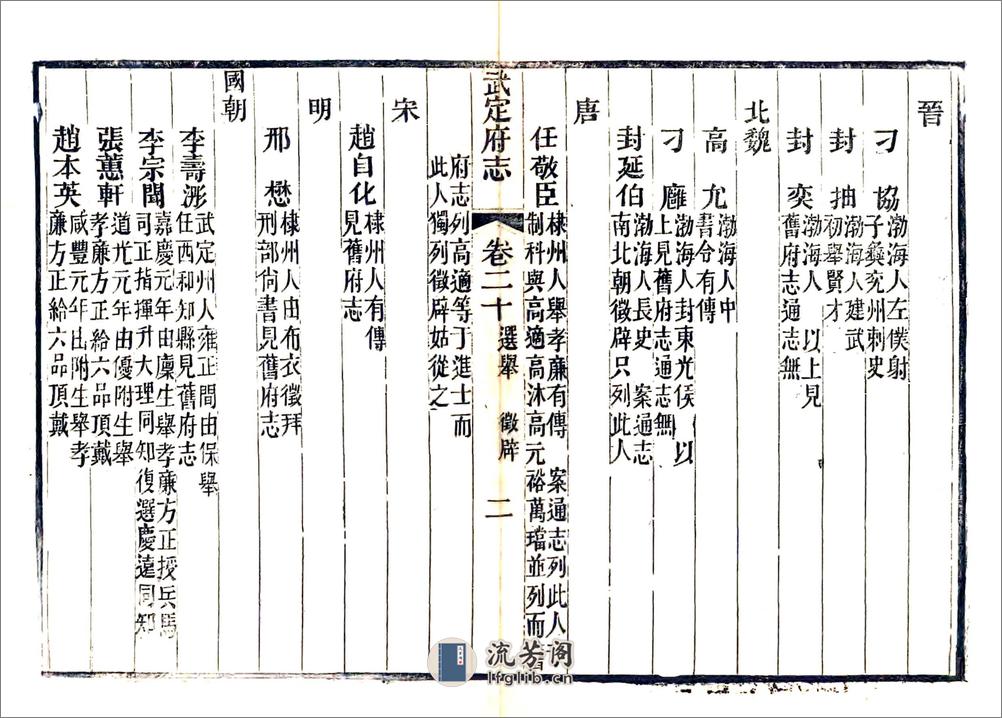 晉
刁 協 渤海人左僕射
子彝兖州刺史
封 抽 渤海人建武
初舉賢才
封 奕 渤海人 以上見
舊府志通志無
北魏
高 允 渤海人中
書令有傳
刁 廱 渤海人封東光侯 以
上見舊府志通志無
封延伯 渤海人長史 案通志
南北朝徵辟只列此人
唐
任敬臣 棣州人舉孝廉有傳 案通志列此人
制科與高適高沐高元裕萬璫並列而
武定府志 卷二十 選舉 徵辟 二
府志列高適等于進士而
此人獨列徵辟姑從之
宋
趙自化 棣州人有傳
見舊府志
明
邢 懋 棣州人由布衣徵拜
刑部尚書見舊府志
國朝
李壽浵 武定州人雍正間由保舉
任西和知縣見舊府志
李宗聞 嘉慶元年由廩生舉孝廉方正授兵馬
司正指揮升大理同知復選慶遠同知
張蕙軒 道光元年由優附生舉
孝廉方正給六品頂戴
趙本英 咸豐元年由附生舉孝
廉方正給六品頂戴
流芳阁
lfglib.cn